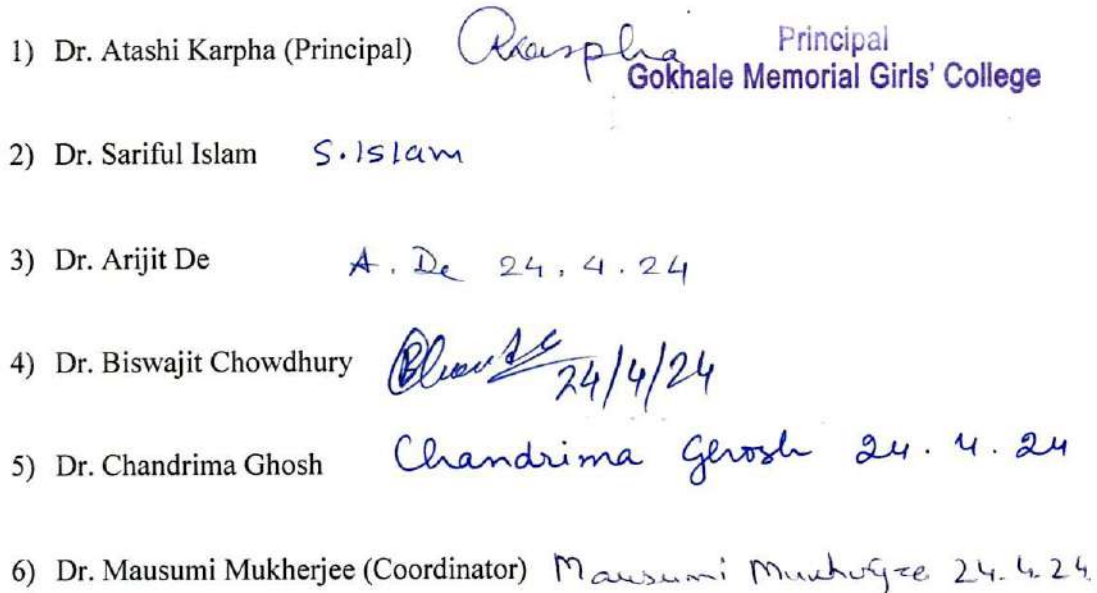 1) Dr. Atashi Karpha (Principal) Principal
Gokhale Memorial Girls' College
2) Dr. Sariful Islam S. Islam
3) Dr. Arijit De A. De 24.4.24
4) Dr. Biswajit Chowdhury 24/4/24
5) Dr. Chandrima Ghosh Chandrima Ghosh 24.4.24
6) Dr. Mausumi Mukherjee (Coordinator) Mausumi Mukherjee 24.4.24